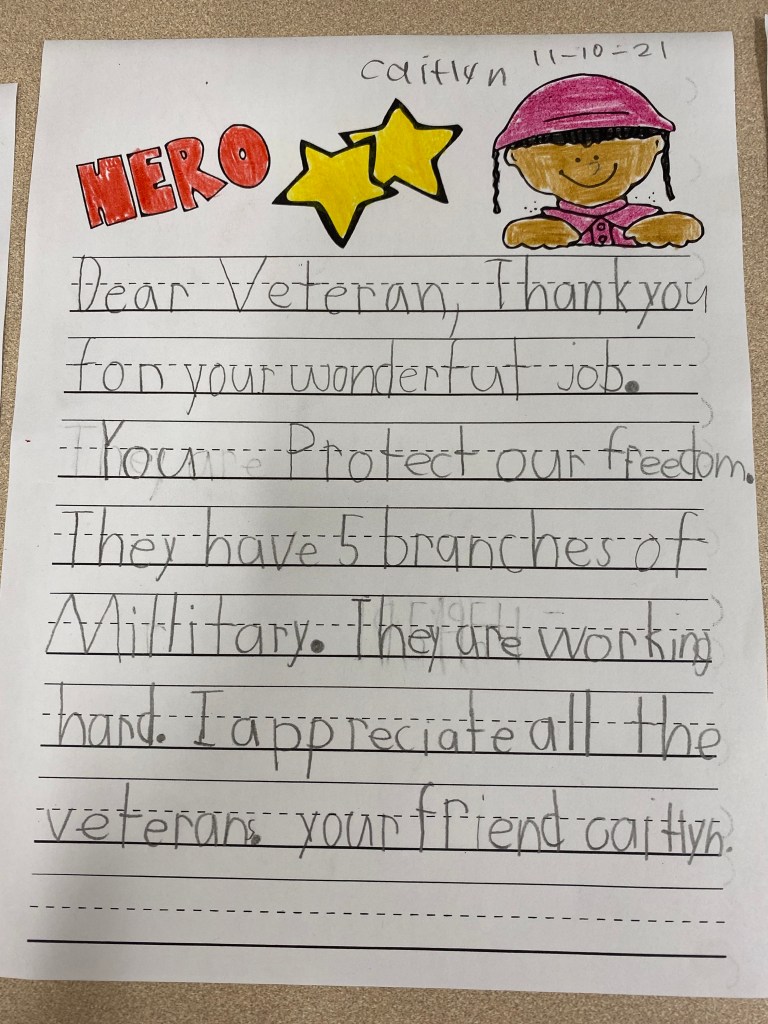 caitlyn 11-10-21
HERO
Dear Veteran, Thank you
for your wonderful job.
You Protect our freedom.
They have 5 branches of
Millitary. They are working
hard. I appreciate all the
veterans. your friend caitlyn.